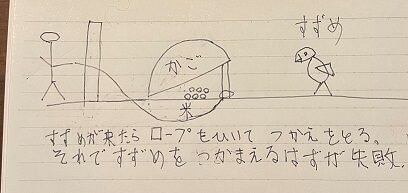 すずめ
かご
米
すずめが来たらロープをひいてつかえをとる。
それですずめをつかまえるはずが失敗.